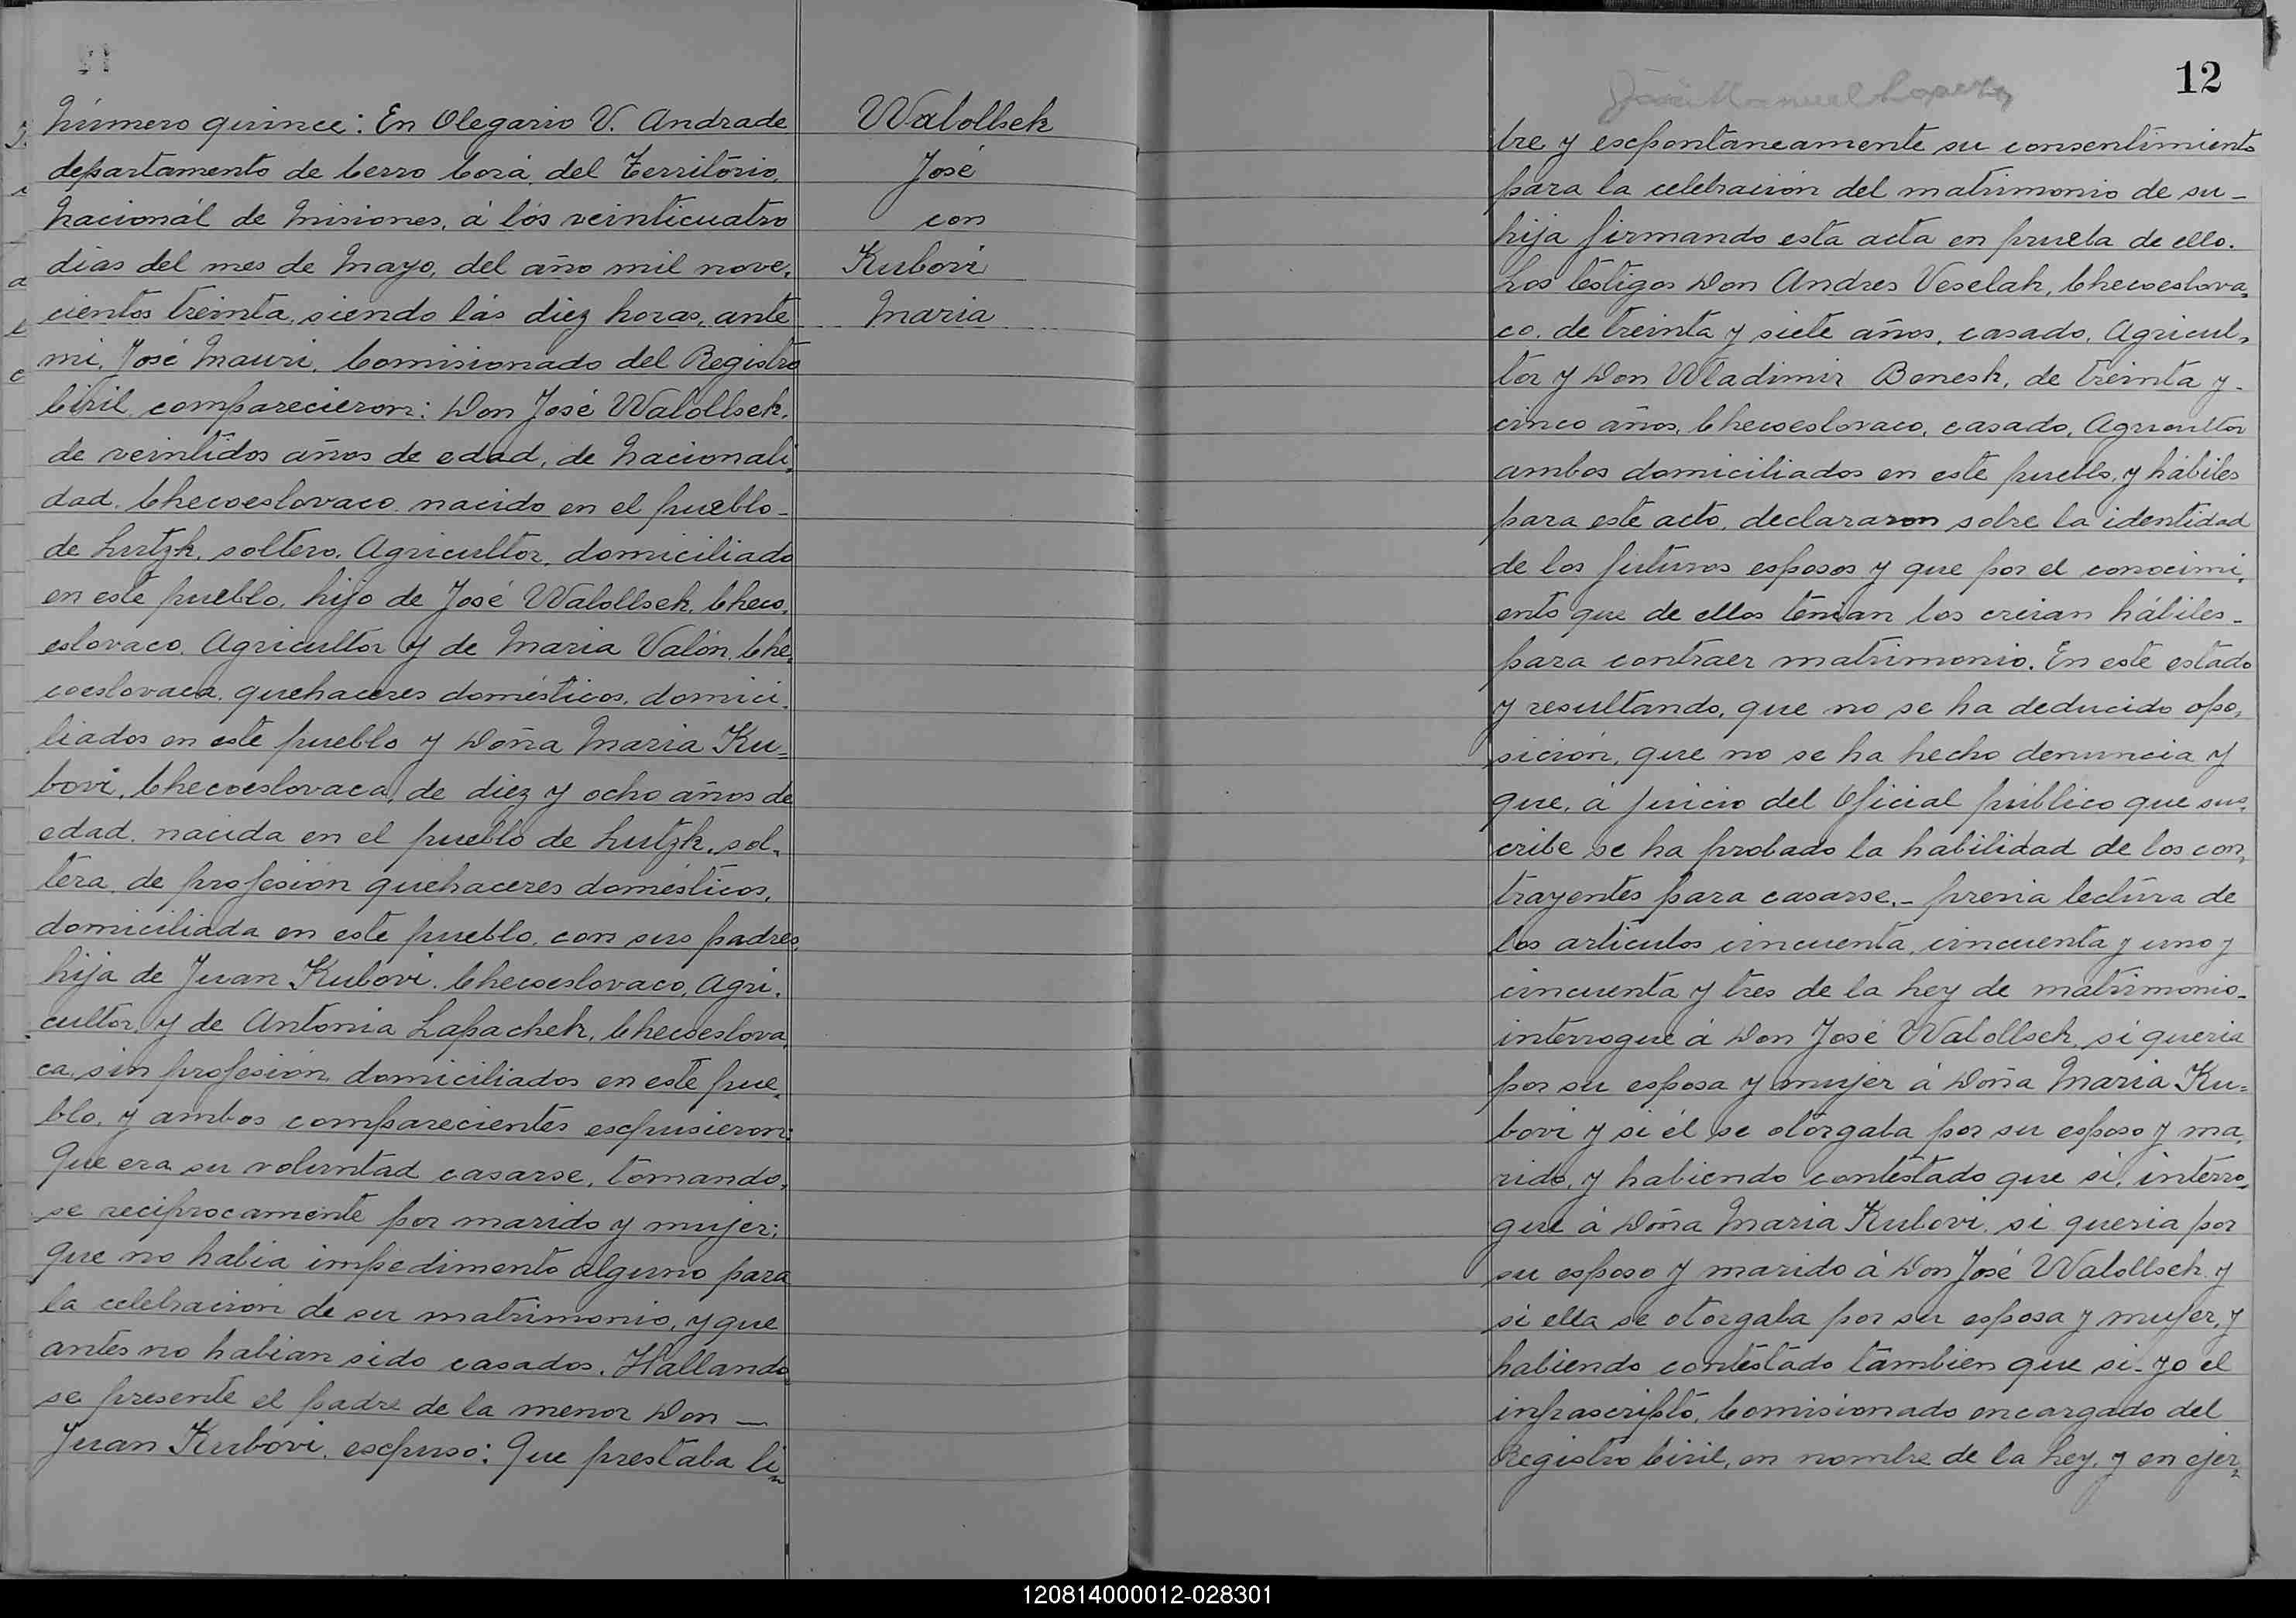 Número quince: En Olegario V. Andrade
departamento de Cerro Corá, del Território,
Nacionál de Misiones, á lós veinticuatro
dias del mes de Mayo, del año mil nove,
cientos treinta, siendo lás diez horas, ante
mi, José Mauri, Comisionado del Registro
Civil, comparecieron: Don José Walollsek,
de veintidos años de edad, de Nacionali,
dad, Checoeslovaco, nacido en el pueblo-
de Lutzk, soltero, Agricultor, domiciliado
en este pueblo, hijo de José Walollsek, Checo,
eslovaco, Agricultor y de Maria Valón, Che,
coeslovaca, quehaceres domésticos, domici,
liados en este pueblo y Doña Maria Ku=
bovi, Checoeslovaca, de diez y ocho años de
edad, nacida en el pueblo de Lutzk, sol,
tera, de profesión quehaceres domésticos,
domiciliada en este pueblo, con sus padres
hija de Juan Kubovi, Checoeslovaco, Agri,
cultor, y de Antonia Lapachek, Checoeslova,
ca, sin profesión, domiciliados en este pue,
blo, y ambos comparecientes escpusieron:
Que era su voluntad casarse, tomando,
se reciprocamente por marido y mujer;
que no habia impedimento alguno para
la celebración de su matrimonio, y que
antes no habian sido casados. Hallando
se presente el padre de la menor Don —
Juan Kubovi, escpuso: Que prestaba li=
Walollsek
José
con
Kubovi
Maria
12
bre y escpontaneamente su consentimiento
para la celebración del matrimonio de su-
hija firmando esta acta en prueba de ello.
Los testigos Don Andres Veselak, Checoeslova,
co, de treinta y siete años, casado, Agricul,
tor y Don Wladimir Benesk, de treinta y-
cinco años, Checoeslovaco, casado, Agricultor
ambos domiciliados en este pueblo, y hábiles
para este acto, declararon sobre la identidad
de los futuros esposos y que por el conocimi,
ento que de ellos tenian los creian hábiles-
para contraer matrimonio. En este estado
y resultando, que no se ha deducido opo,
sición, que no se ha hecho denuncia y
que, á juicio del Oficial público que sus,
cribe se ha probado la habilidad de los con,
trayentes para casarse.- previa lectura de
los articulos cincuenta, cincuenta y uno y
cincuenta y tres de la Ley de matrimonio-
interrogué á Don José Walollsek, si queria
por su esposa y mujer á Doña Maria Ku=
bovi y si él se otorgaba por su esposo y ma,
rido, y habiendo contestado que si, interro,
gué á Doña Maria Kubovi, si queria por
su esposo y marido á Don José Walollsek y
si ella se otorgaba por su esposa y mujer, y
habiendo contestado tambien que si- yo el
infrascripto, Comisionado encargado del
Registro Civil, en nombre de la Ley, y en ejer=
120814000012-028301